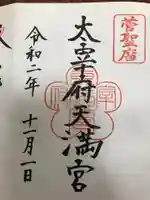 菅聖庿
太宰府天満宮
令和二年
十一月一日